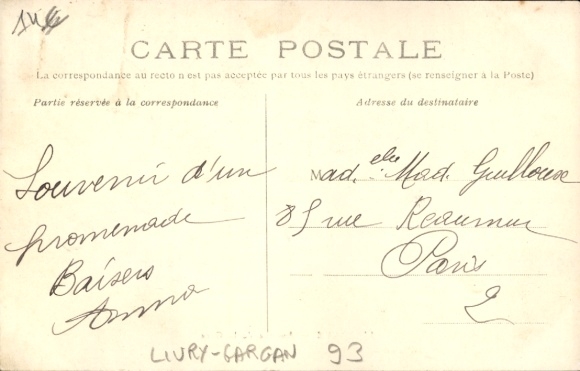 144
CARTE POSTALE
La correspondance au recto n'est pas acceptée par tous les pays étrangers (se renseigner à la Poste)
Partie réservée à la correspondance
Adresse du destinataire
Souvenir d'un
promenade
Baisers
Anna
Mad.elle Mad. Guillouse
85 rue Reaumur
Paris
2
LIVRY-GARGAN 93